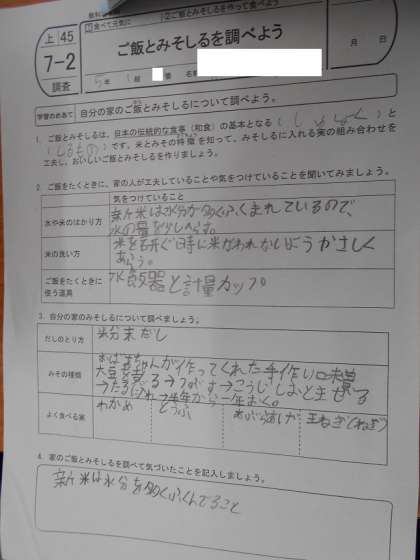 ①食べて元気に ②ご飯とみそしるを作って食べよう
上 45
7-2
調査
ご飯とみそしるを調べよう
5年 1組 番 名前
月 日
学習のめあて 自分の家のご飯とみそしるについて調べよう。
1. ご飯とみそしるは、日本の伝統的な食事（和食）の基本となる（しゅしょく）と
（しるもの）です。米とみその特徴を知って、みそしるに入れる実の組み合わせを
工夫し、おいしいご飯とみそしるを作りましょう。
2. ご飯をたくときに、家の人が工夫していることや気をつけていることを聞いてみましょう。
気をつけていること
水や米のはかり方
新米は水分が多くふくまれているので、
水の量を少しへらす。
米の洗い方
米を研ぐ時に米がわれないようやさしく
あらう。
ご飯をたくときに
使う道具
炊飯器と計量カップ
3. 自分の家のみそしるについて調べましょう。
だしのとり方
粉末だし
みその種類
おばあちゃんが作ってくれた手作り味噌
大豆を煮る→つぶす→こうじしおとまぜる
→たるに入れ→半年から一年まく。
よく食べる実
わかめ とうふ あぶらあげ 玉ねぎ(ねぎ)
4. 家のご飯とみそしるを調べて気づいたことを記入しましょう。
新米は水分を多くふくんでること